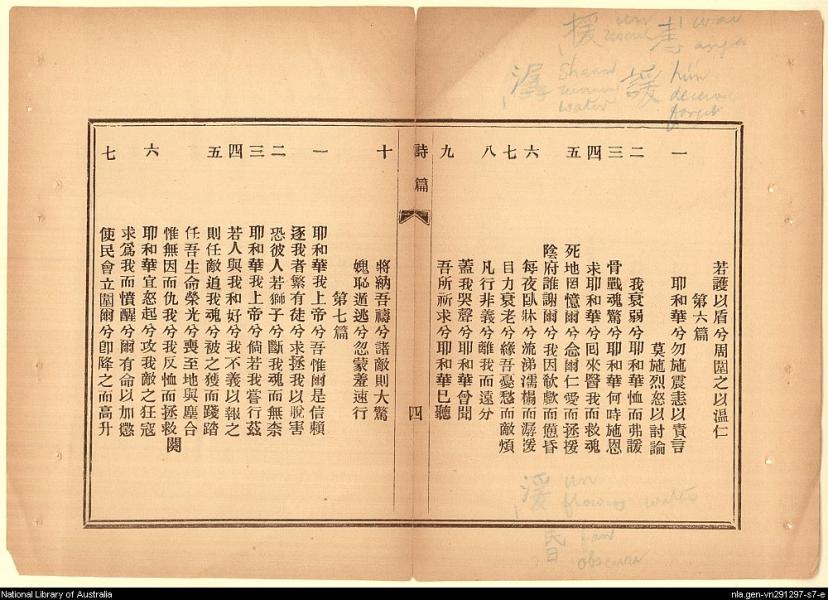 若護以盾兮周圍之以溫仁
第六篇
一 耶和華兮勿施震恚以責言
莫施烈怒以討論
二 我衰弱兮耶和華恤而弗諼
三 骨戰魂驚兮耶和華何時施恩
四 求耶和華兮囘來醫我而救魂
五 死地罔憶爾兮念爾仁愛而拯援
陰府誰謝爾兮我因欷歔而惛昏
六 每夜臥牀兮流涕濡榻而潺湲
七 目力衰老兮緣吾憂愁而敵煩
八 凡行非義兮離我而遠分
蓋我哭聲兮耶和華曾聞
九 吾所祈求兮耶和華已聽
詩篇
四
十 將納吾禱兮諸敵則大驚
媿恥遁逃兮忽蒙羞速行
第七篇
一 耶和華我上帝兮吾惟爾是信賴
逐我者繁有徒兮求拯我以脫害
二 恐彼人若獅子兮斷我魂而無柰
三 耶和華我上帝兮倘若我嘗行茲
四 若人與我和好兮我不義以報之
五 則任敵追我魂兮被之獲而踐踏
任吾生命榮光兮喪至地與塵合
惟無因而仇我兮我反恤而拯救闋
六 耶和華宜怒起兮攻我敵之狂寇
求爲我而憤醒兮爾有命以加懲
七 使民會立圍爾兮卽降之而高升
援 un
恚 anger
潺 water
諼 deceive forget
湲 un flowing water
昬 obscure
National Library of Australia
nla.gen-vn291297-s7-e